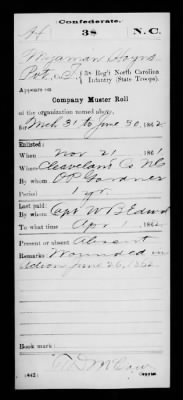 Confederate.
H 38 N.C.
Wyaman Hoyns
Pvt, Co. I, 38 Reg't North Carolina
Infantry (State Troops).
Appears on
Company Muster Roll
of the organization named above,
for Mch 31 to June 30, 1862.
Enlisted:
When Nov 21, 1861
Where Cleveland Co NC
By whom O P Gardner
Period 1 yr.
Last paid:
By whom Capt W B
To what time Apr 1, 1862.
Present or absent Absent
Remarks Wounded in
action June 26, 1862
Book mark:
(642)